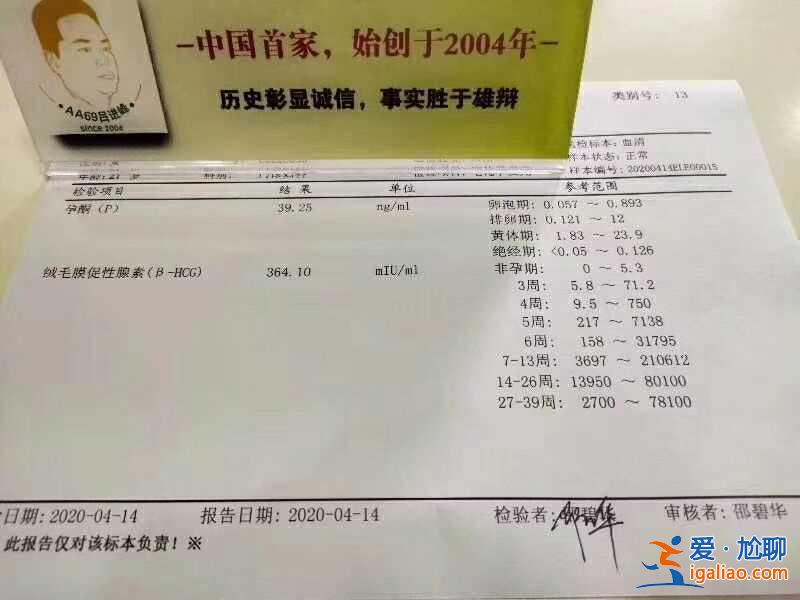 －中国首家，始创于2004年－
历史彰显诚信，事实胜于雄辩
·AA69吕进峰·
since 2004
类别号： 13
检标本：血清
样本状态：正常
样本编号：20200414ELE00015
检验项目 结 果 单位 参考范围
孕酮（P） 39.25 ng/ml 卵泡期：0.057 ～ 0.893
排卵期：0.121 ～ 12
黄体期： 1.83 ～ 23.9
绝经期：<0.05 ～ 0.126
绒毛膜促性腺素(β-HCG) 364.10 mIU/ml 非孕期： 0 ～ 5.3
3周： 5.8 ～ 71.2
4周： 9.5 ～ 750
5周： 217 ～ 7138
6周： 158 ～ 31795
7-13周： 3697 ～ 210612
14-26周：13950 ～ 80100
27-39周： 2700 ～ 78100
日期：2020-04-14 报告日期：2020-04-14 检验者：邵碧华 审核者：邵碧华
此报告仅对该标本负责！※
爱·尬聊
igaliao.com